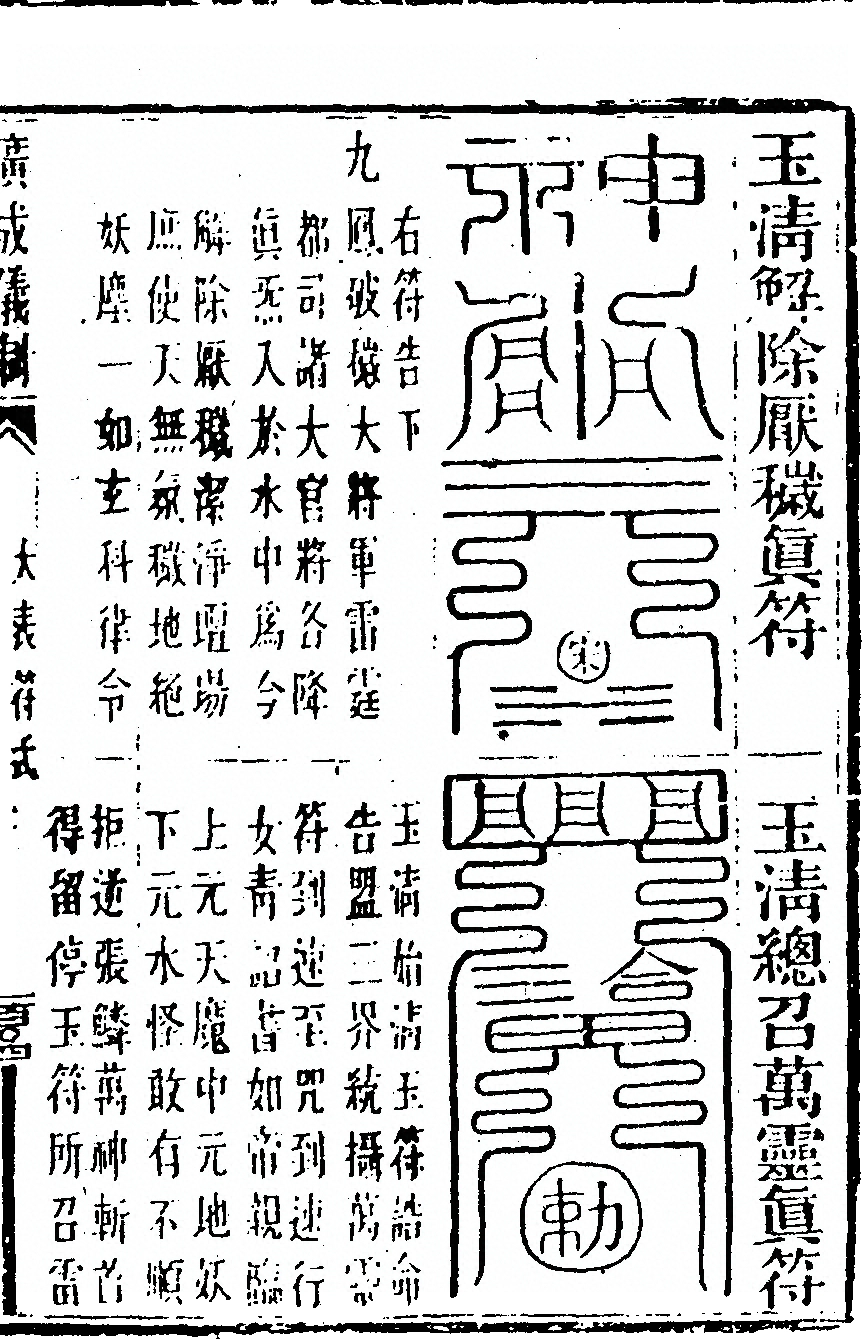 玉清解除厭穢眞符
右符告下
九鳳破穢大將軍雷霆
都司諸大官將各降
眞炁入於水中爲今
解除厭穢潔淨壇場
庶使天無氛穢地絶
妖塵一如玄科律令
玉清總召萬靈眞符
勅
玉清始清玉符誥命
告盟三界統攝萬靈
符到速至咒到速行
女青詔書如帝親臨
上元天魔中元地妖
下元水怪敢有不順
拒逆張鱗萬神斬首
得留停玉符所召雷
廣成儀制
大表符式